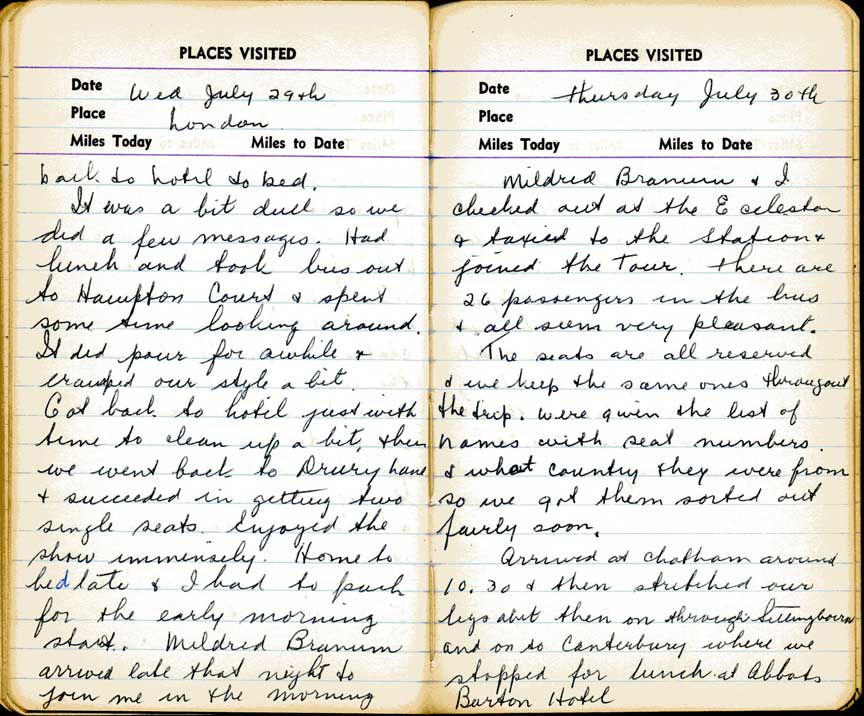 PLACES VISITED
Date Wed July 29th
Place London
Miles Today Miles to Date
back to hotel to bed.
It was a bit dull so we
did a few messages. Had
lunch and took bus out
to Hampton Court & spent
some time looking around.
It did pour for awhile &
cramped our style a bit.
Got back to hotel just with
time to clean up a bit, then
we went back to Drury Lane
& succeeded in getting two
single seats. Enjoyed the
show immensely. Home to
bed late & I had to pack
for the early morning
start. Mildred Branum
arrived late that night to
join me in the morning
PLACES VISITED
Date Thursday July 30th
Place
Miles Today Miles to Date
Mildred Branum & I
checked out at the Ecleston
& taxied to the Station &
joined the Tour. There are
26 passengers in the bus
& all seem very pleasant.
The seats are all reserved
& we keep the same ones througout
the trip. Were given the list of
names with seat numbers.
& what country they were from
so we got them sorted out
fairly soon.
Arrived at Chatham around
10.30 & then stretched our
legs abit then on through Sittingbourn
and on to Canterbury where we
stopped for lunch at Abbots
Barton Hotel